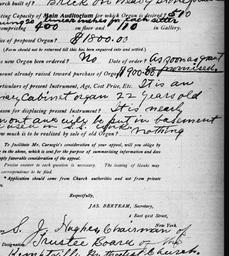 urch built of? Brick on heavy
ating Capacity of Main Auditorium for which Organ is desired? 510
comprising 400 on floor and 110 in Gallery.
ice of proposed Organ? $1800.00
(Form should not be returned till this has been inquired into and settled.)
a new Organ been ordered? No. Date of order? As soon as grant
ount already raised toward purchase of Organ? $900.00 is promised.
rticulars of present Instrument, Age, Cost Price, Etc. It is an
Cabinet organ 22 years old
ason for displacing present Instrument? It is nearly
out and will be put in basement
used in S.S. work
w much is to be realized by sale of old Organ? nothing
To facilitate Mr. Carnegie's consideration of your appeal, will you oblige by
in the above, which is sent for the purpose of summarizing information and does
ply favorable consideration of the appeal.
Precise answer to each question is necessary. The leaving of blanks may
correspondence to be filed.
* Application should come from Church authorities and not from private
Respectfully,
JAS. BERTRAM, Secretary,
2 East 91st Street,
New York.
S. J. Hughes Chairman of
Designation Trustee Board of the
Kemptville Methodist Church.